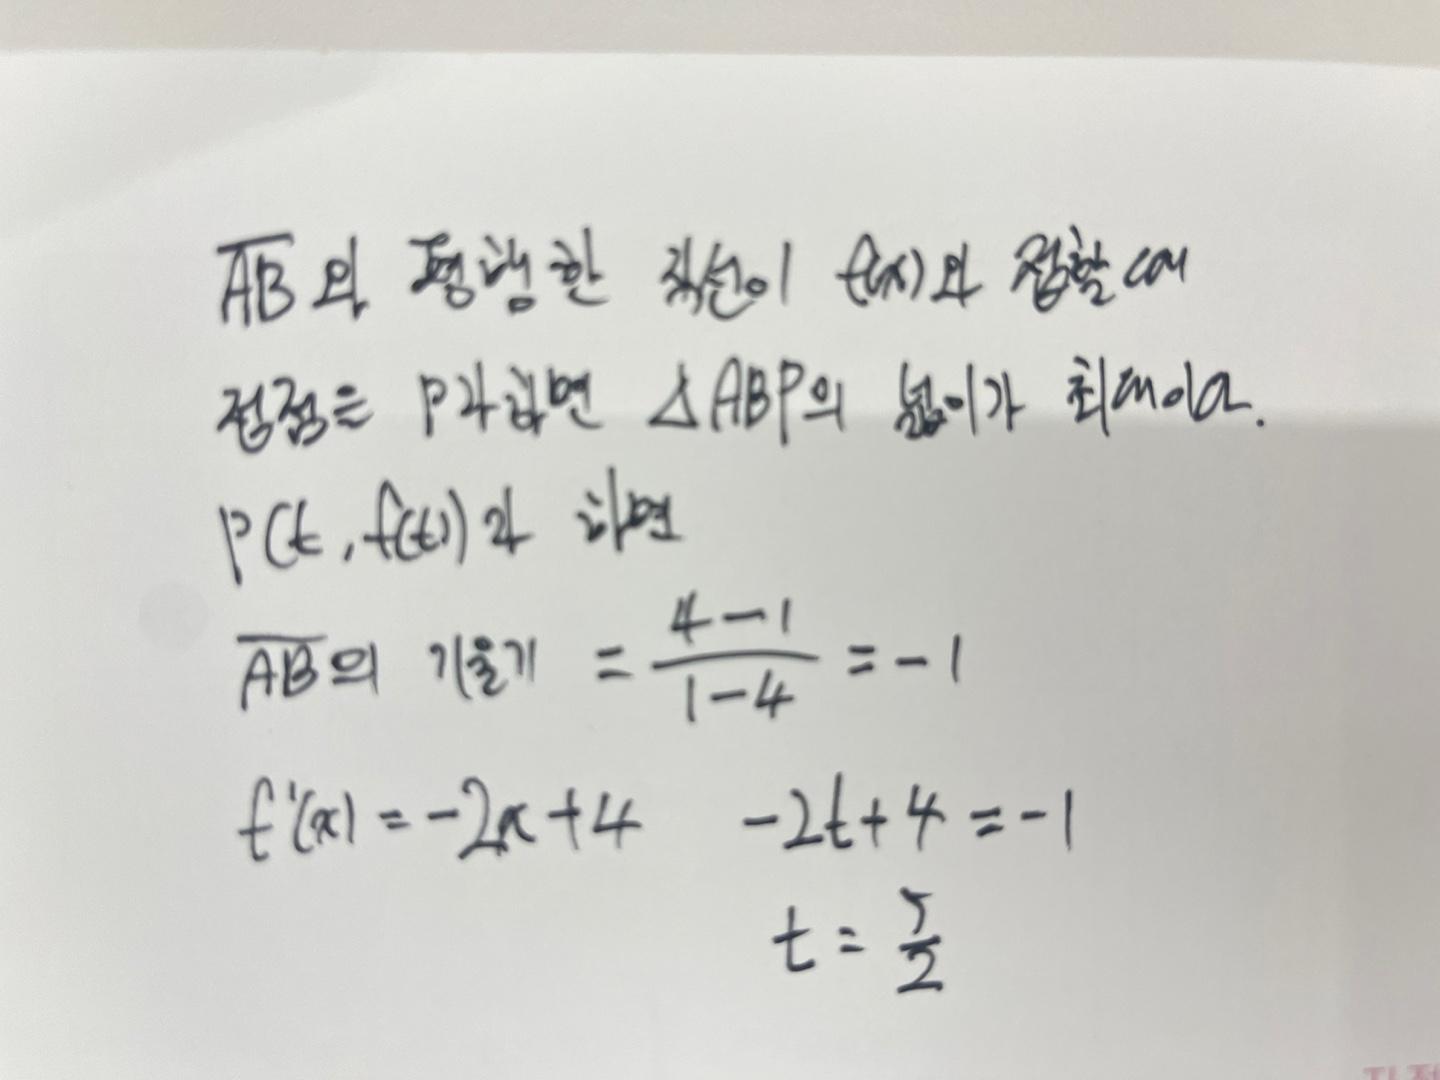 AB와 평행한 직선이 f(x)와 접할 때
접점을 P라 하면 △ABP의 넓이가 최대이다.
P(t, f(t))라 하면
AB의 기울기 = (4-1)/(1-4) = -1
f'(x) = -2x+4 -2t+4 = -1
t = 5/2